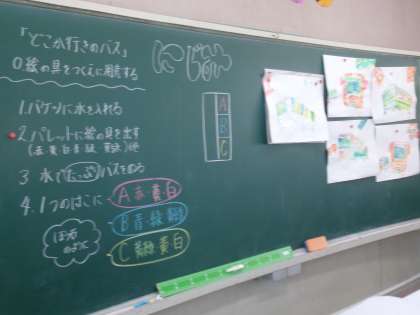 「どこか行きのバス」
0絵の具をつくえに用意する
1.バケツに水を入れる
2.パレットに絵の具を出す
(赤・黄・白・青・緑・黄緑)
3 水でたっぷりバスをぬる
4.1つのはこに
A 赤・黄・白
B 青・緑
C 黄緑・黄・白
のように
にじみ
A
B
C